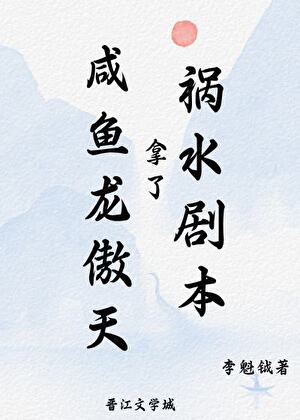 咸鱼龙傲天
拿了
祸水剧本
李魁钺著
晋江文学城